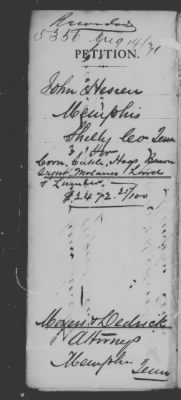 Recorded
5356 Aug 14/71
PETITION.
John Hessen
Memphis
Shelby Co Tenn
For
Corn, Cattle, Hogs, Bacon
Sugar, Molasses,
& Lumber.
$2472.21/100
Moyers & Dedrick
Attorneys
Memphis
Tenn